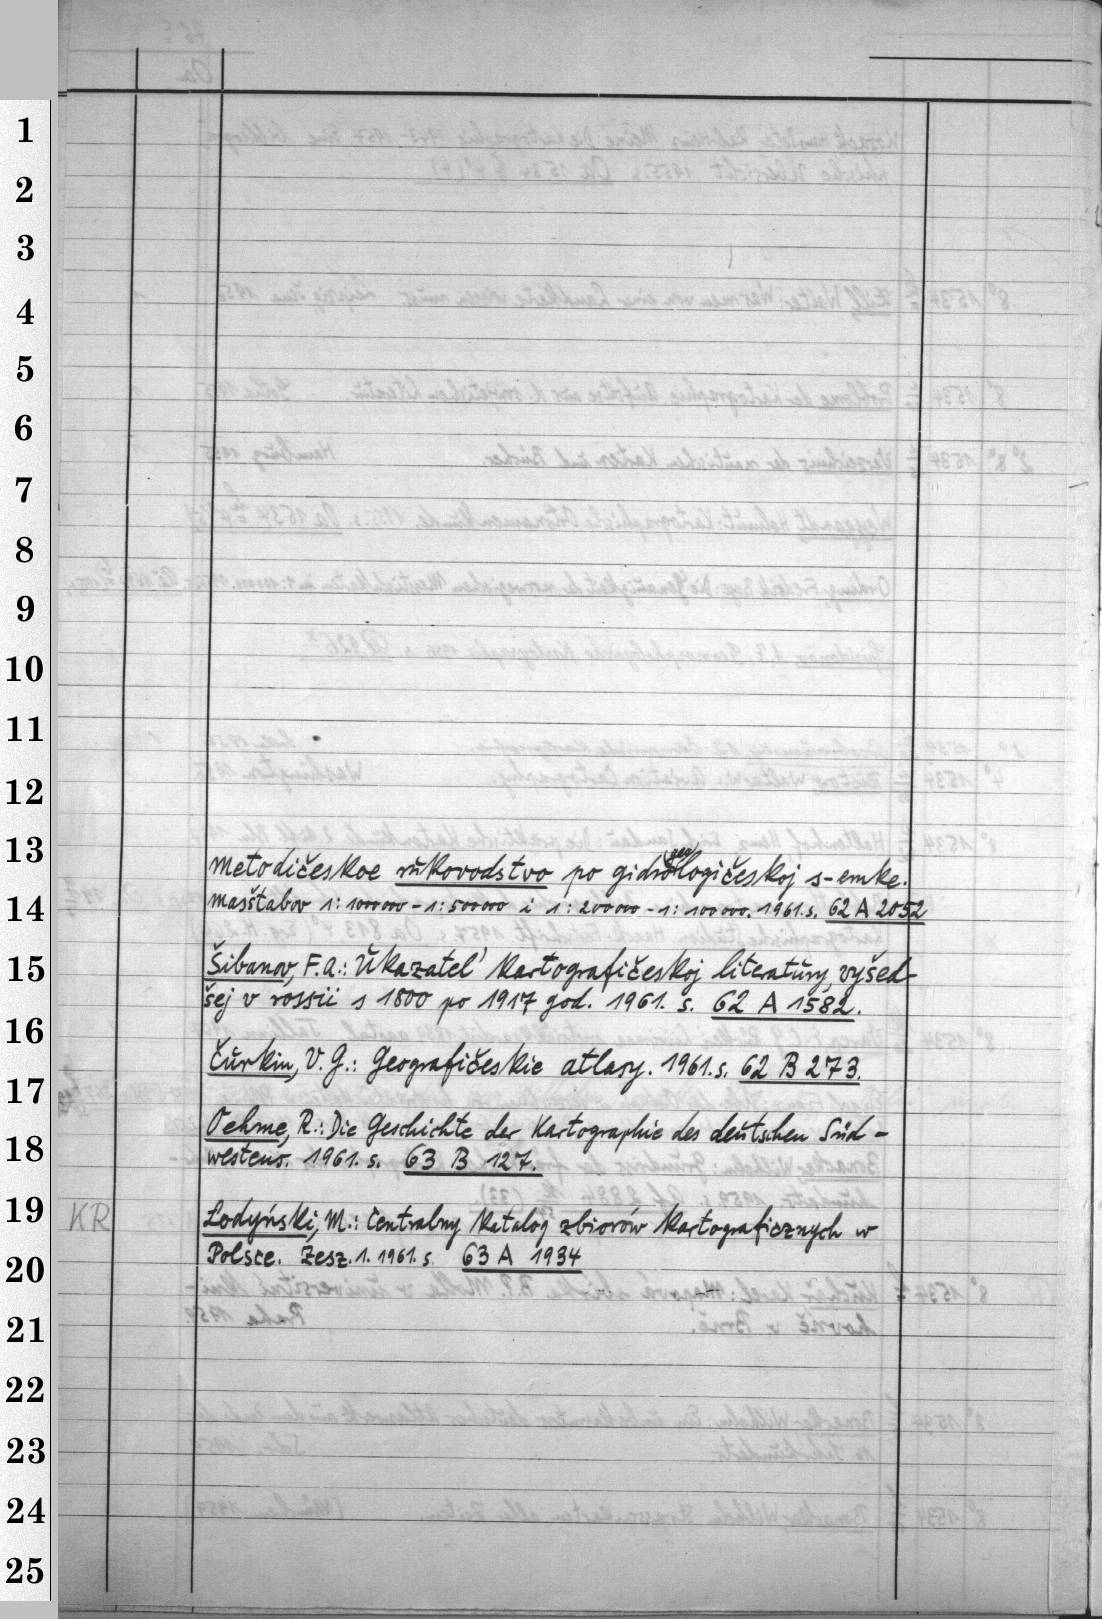 1
2
3
4
5
6
7
8
9
10
11
12
13
14
15
16
17
18
19
20
21
22
23
24
25
Metodičeskoe rukovodstvo po gidrogeologičeskoj s-emke.
masštabov 1:1000000 - 1:500000 i 1:200000 - 1:100000. 1961. s. 62 A 2052
Šibanov, F.A.: Ŭkazatel' kartografičeskoj literatŭry, vyšed-
šej v rossii s 1800 po 1917 god. 1961. s. 62 A 1582.
Čŭrkin, V. G.: Geografičeskie atlasy. 1961. s. 62 B 273.
Oehme, R.: Die Geschichte der Kartographie des deutschen Süd-
westens. 1961. s. 63 B 127.
KR Lodyński, M.: Centralny Katalog zbiorów Kartograficznych w
Polsce. Zesz. 1. 1961. s. 63 A 1934